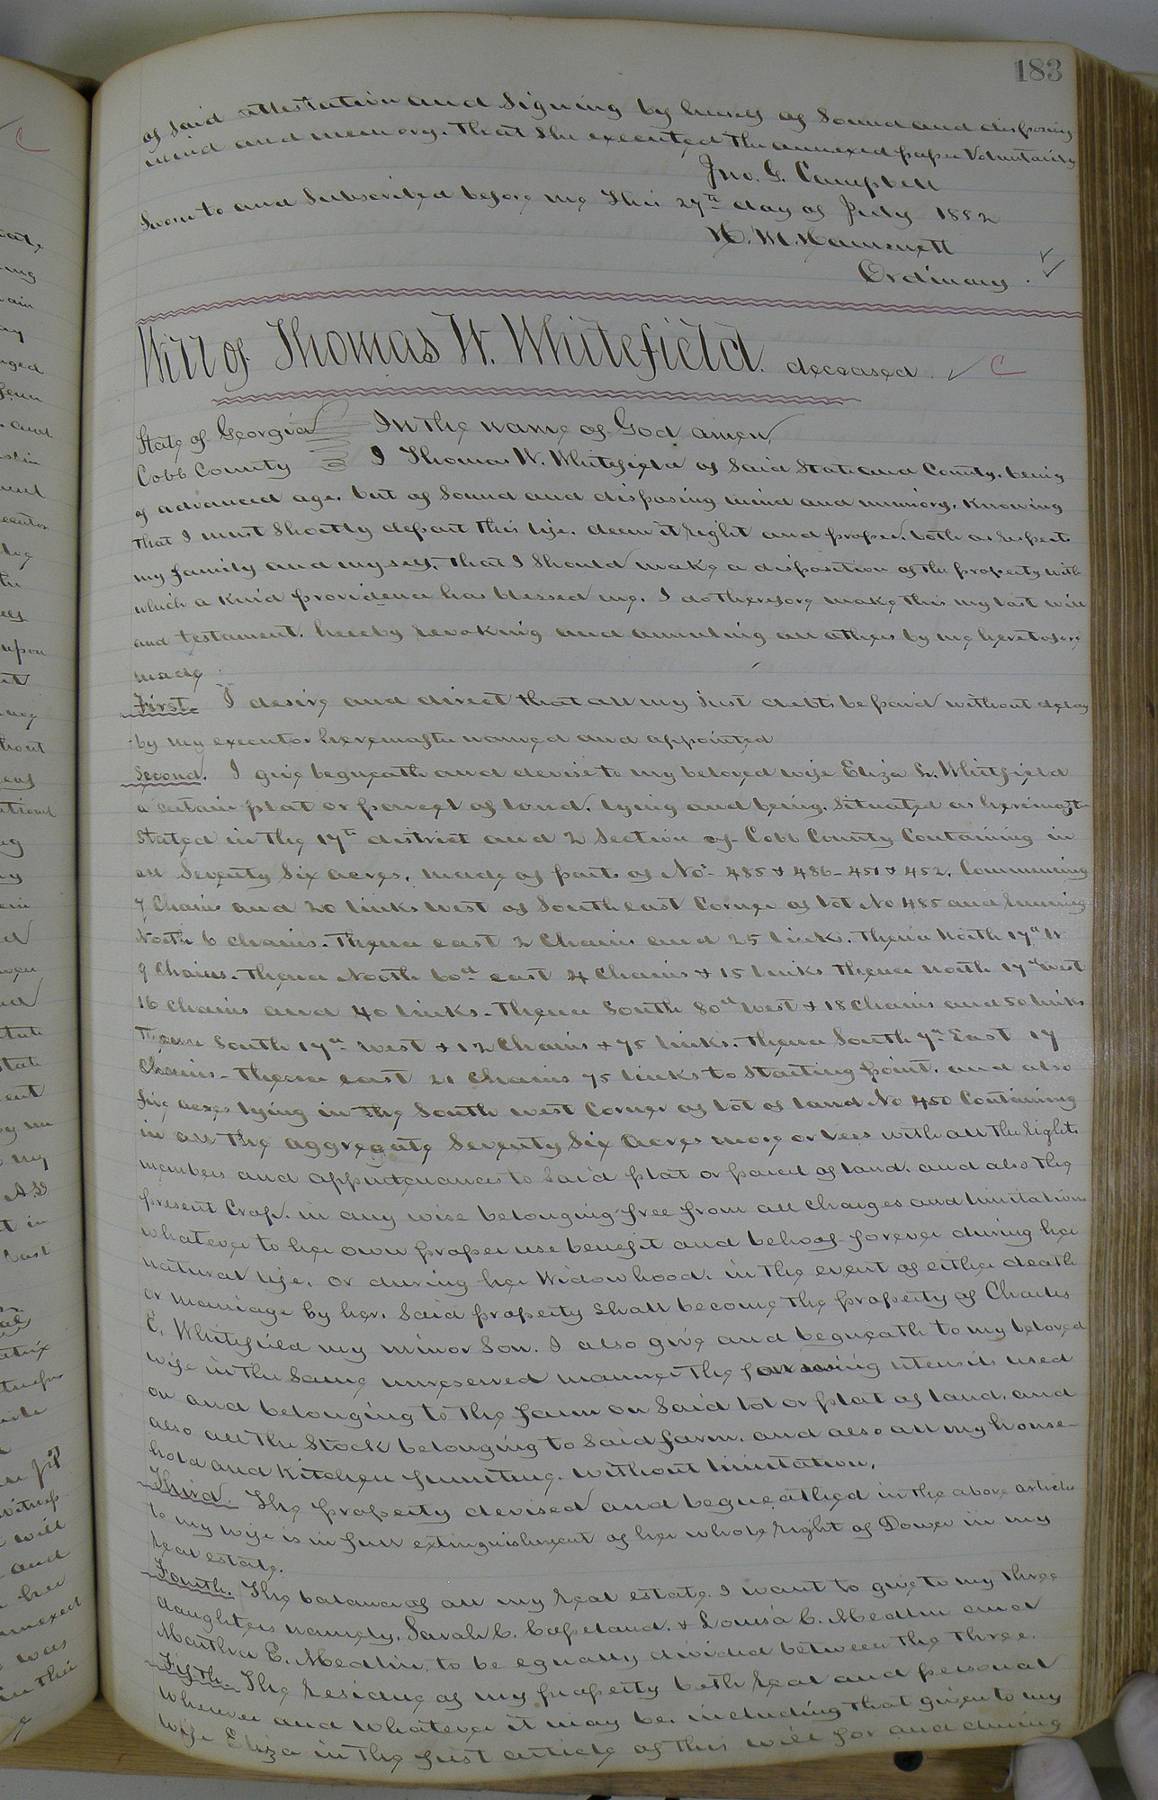 183
of said attestation and Signing by himself of Sound and disposing
mind and memory. That she executed the annexed paper Voluntarily
Jno. G. Campbell
Sworn to and Subscribed before me This 27th day of July 1882
H. M. Hammett
Ordinary.
Will of Thomas W. Whitefield. deceased. C
State of Georgia In the name of God amen,
Cobb County I Thomas W. Whitefield of Said State and County. being
of advanced age. but of Sound and disposing mind and memory, Knowing
that I must Shortly depart this life. deem it right and proper. both as respects
my family and myself, that I Should make a disposition of the property with
which a Kind providence has blessed me. I do therefore make this my last will
and testament. hereby revoking and annulling all others by me heretofore
made
First. I desire and direct that all my Just debts be paid without delay
by my executor hereinafter named and appointed
Second. I give bequeath and devise to my beloved wife Eliza L. Whitfield
a certain plat or parcel of land, lying and being, Situated as hereinafter
Stated in the 17th district and 2 Section of Cobb County Containing in
all Seventy Six acres, made of parts of No. 485 & 486 - 451 & 452. Commencing
7 Chains and 20 links West of South east Corner of lot No 485 and running
North 6 chains. Thence east 2 Chains and 25 links. Thence North 17d W
9 Chains. Thence North 60d east 4 Chains & 15 links Thence north 17d West
16 Chains and 40 links. Thence South 80d West & 18 Chains and 50 links
Thence South 17d West & 12 Chains & 75 links. Thence South 7d East 17
Chains - Thence east 21 Chains 75 links to Starting point. and also
five acres lying in the South west Corner of lot of land No 450 Containing
in all the aggregate Seventy Six acres more or less with all the rights
members and appurtenances to Said plat or parcel of land. and also the
present Crop. in any wise belonging free from all Charges and limitations
whatever to her own proper use benefit and behoof forever during her
natural life. or during her Widowhood. in the event of either death
or marriage by her. Said property Shall become the property of Charles
C. Whitefield my minor Son. I also give and bequeath to my beloved
wife in the Same unreserved manner the farming utensils used
on and belonging to the farm on Said lot or plat of land. and
also all the Stock belonging to Said farm. and also all my house-
hold and Kitchen furniture. without limitation.
Third. The property devised and bequeathed in the above article
to my wife is in full extinguishment of her whole right of Dower in my
real estate.
Fourth. The balance of all my real estate I want to give to my three
daughters namely, Sarah C. Copeland. & Louisa C. Medlin and
Martha E. Medlin. to be equally divided between the three.
Fifth. The residue of my property both real and personal
wherever and whatever it may be. including that given to my
wife Eliza in the first article of this will for and during